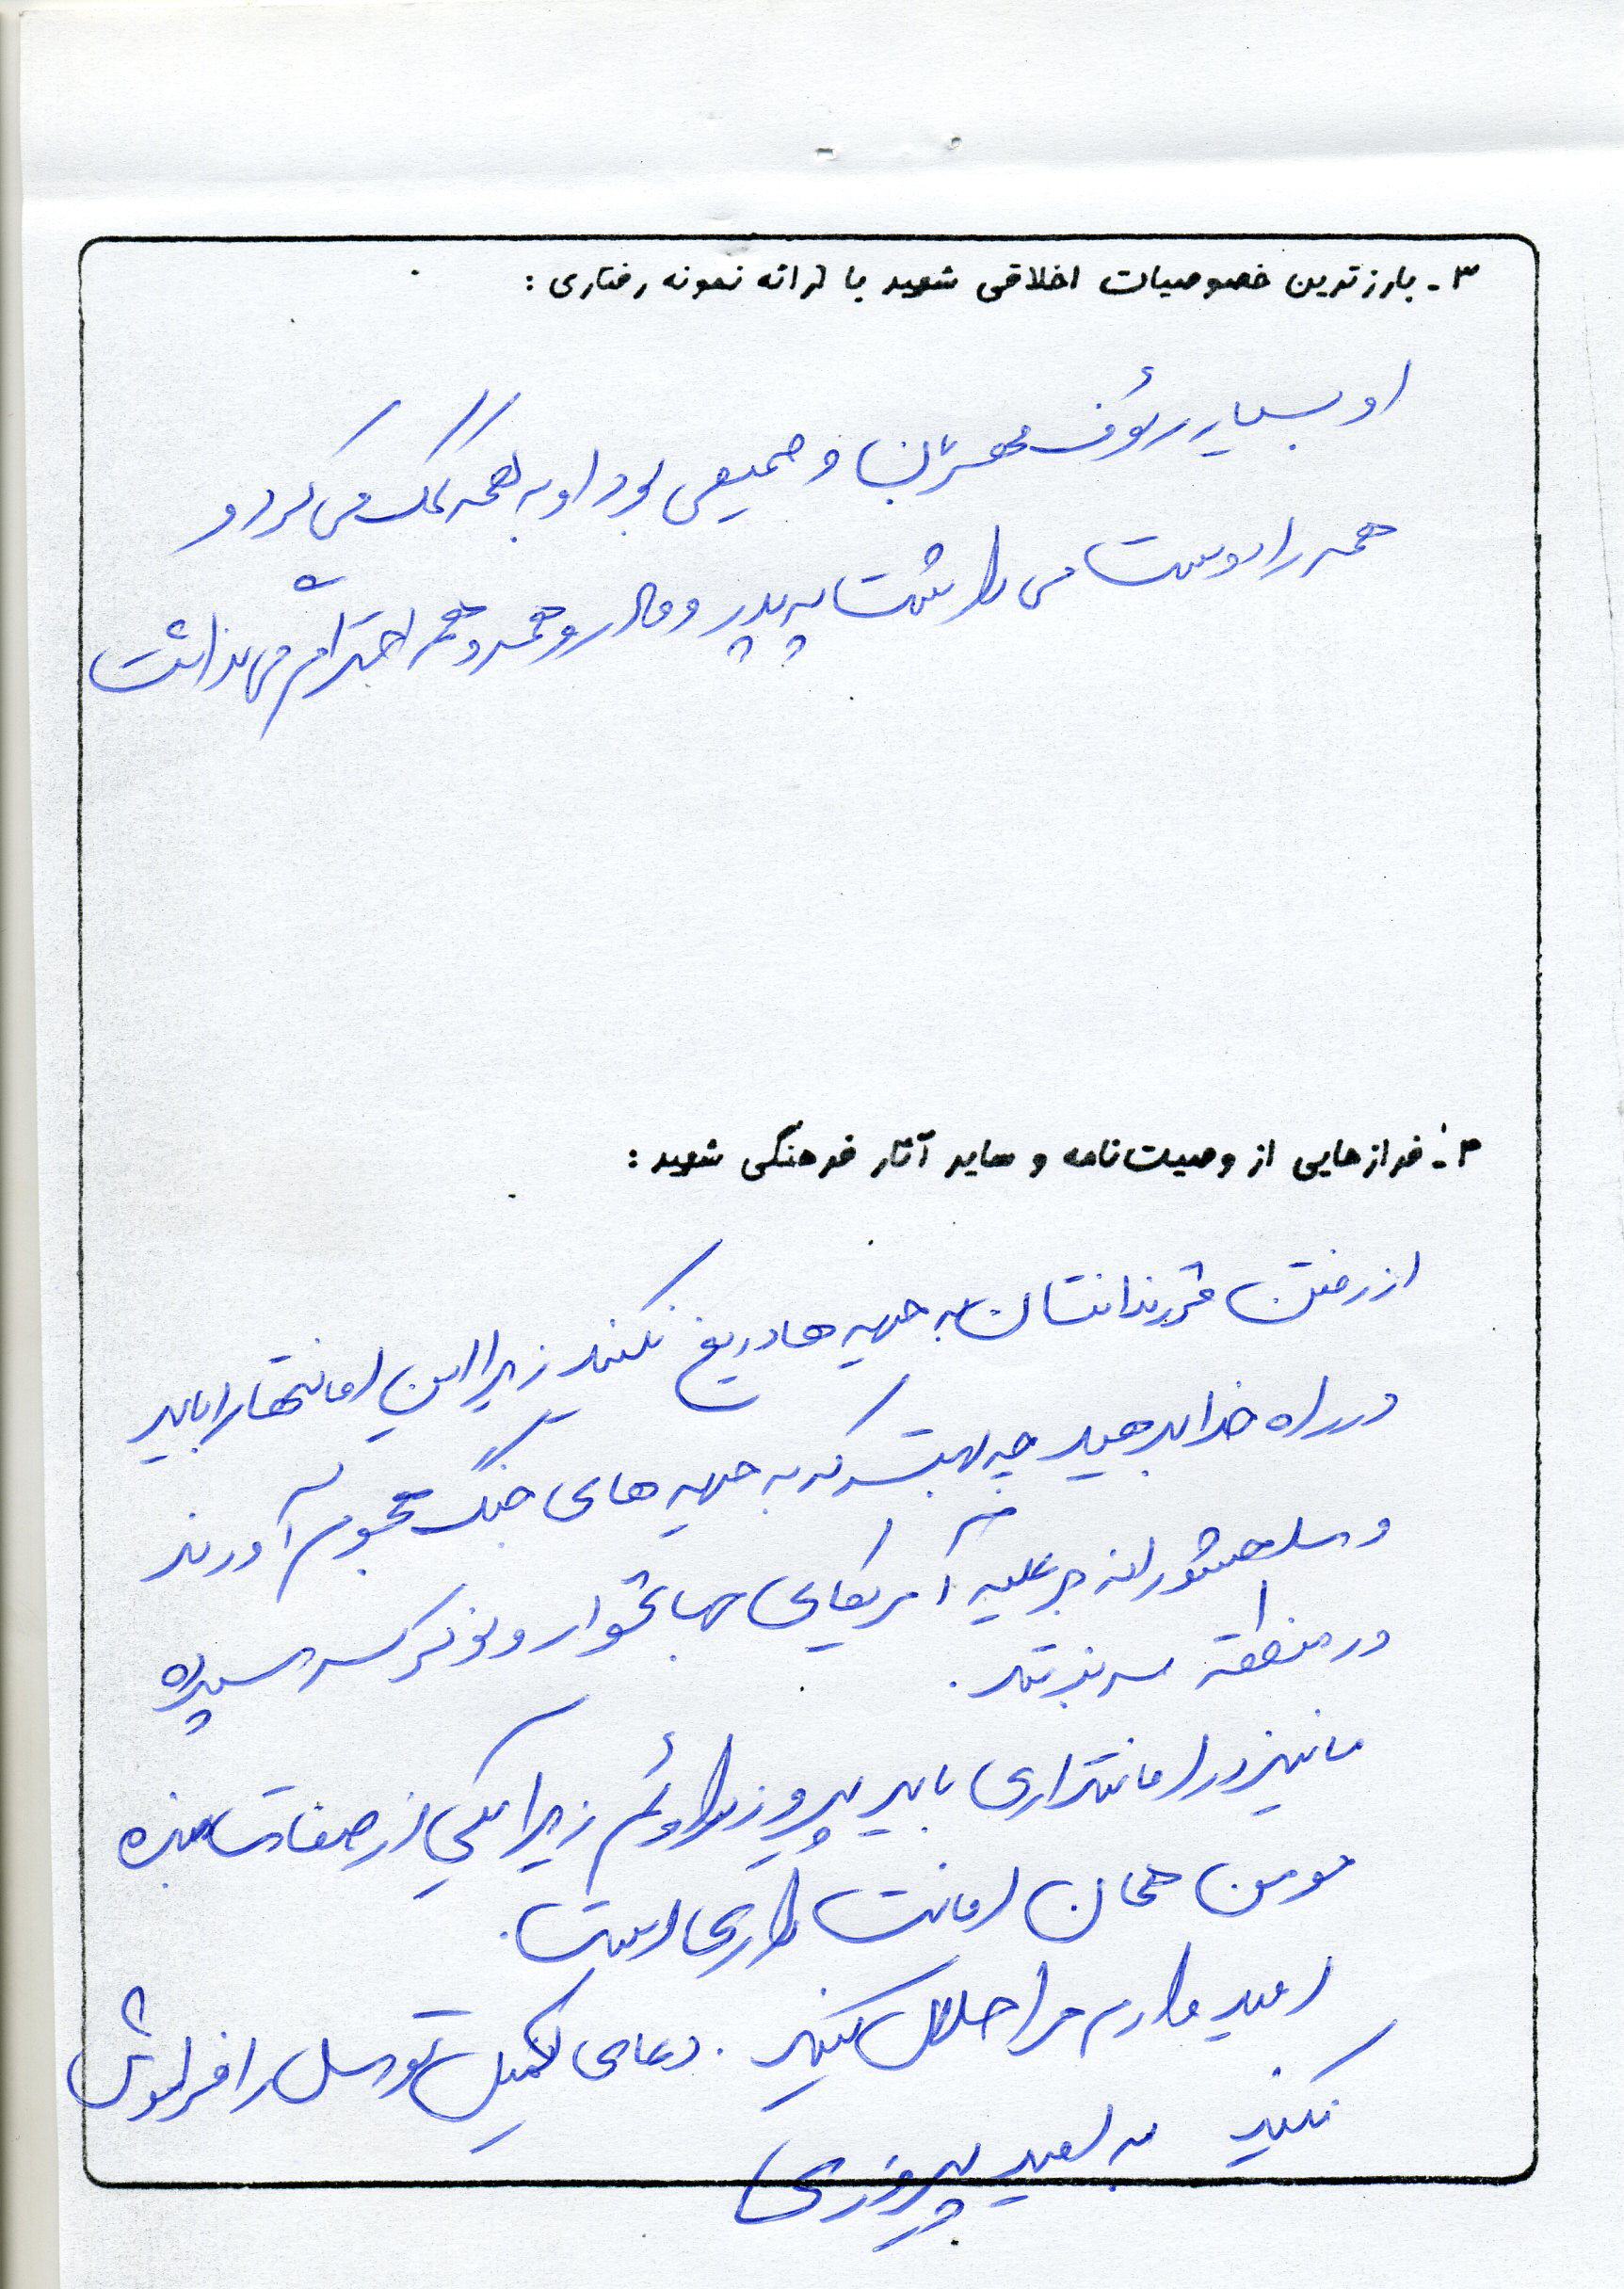 ۳- بارزترین خصوصیات اخلاقی شهید با ارائه نمونه رفتاری :
او بسیار رئوف مهربان و صمیمی بود او به همه کمک می کرد و
همه را دوست می داشت به پدر و مادر و همه و همه احترام می گذاشت
۴- فرازهایی از وصیت‌نامه و سایر آثار فرهنگی شهید :
از رفتن فرزندانتان به جبهه ها دریغ نکنند زیرا این امانتها را باید
در راه خدا بدهید چه بهتر که به جبهه های جنگ هجوم آورند
و سلحشورانه بر علیه آمریکای جهانخوار و نوکر سرسپرده
در منطقه بتازند.
ما نیز در امانتداری باید پیروز در آئیم زیرا یکی از صفات بنده
مومن همان امانت داری است.
امیدوارم مرا حلال کنید. دعای کمیل توسل را فراموش
نکنید به امید پیروزی